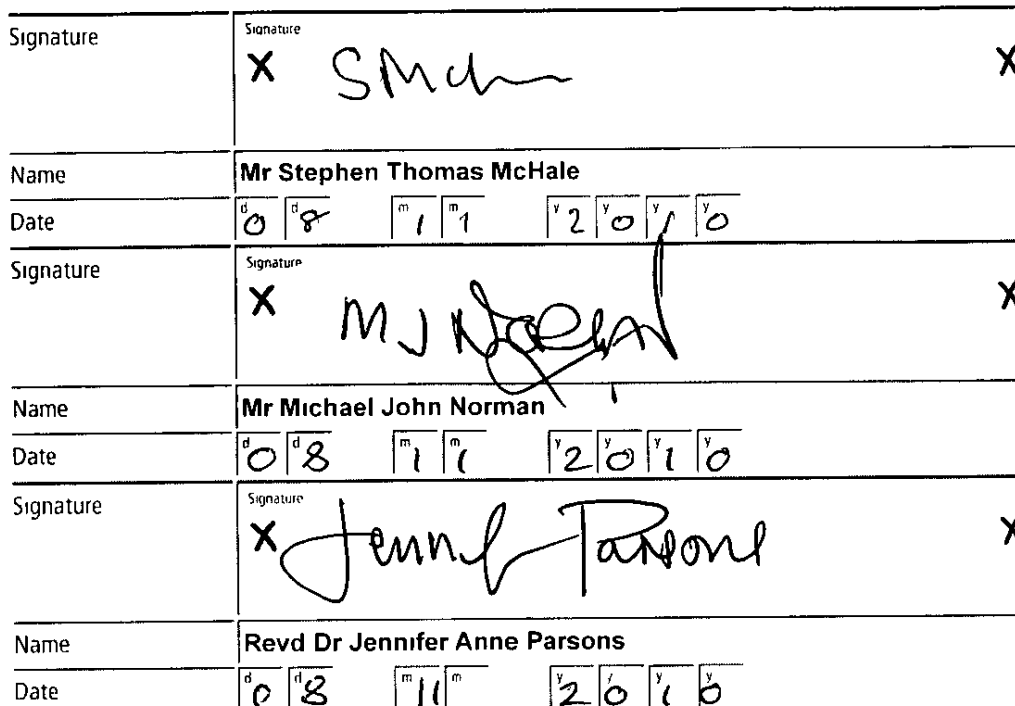 Signature Signature
X SMch X
Name Mr Stephen Thomas McHale
Date d0 d8 m1 m1 y2 y0 y1 y0
Signature Signature
X M J Norman X
Name Mr Michael John Norman
Date d0 d8 m1 m1 y2 y0 y1 y0
Signature Signature
X Jennifer Parsons X
Name Revd Dr Jennifer Anne Parsons
Date d0 d8 m1 m1 y2 y0 y1 y0